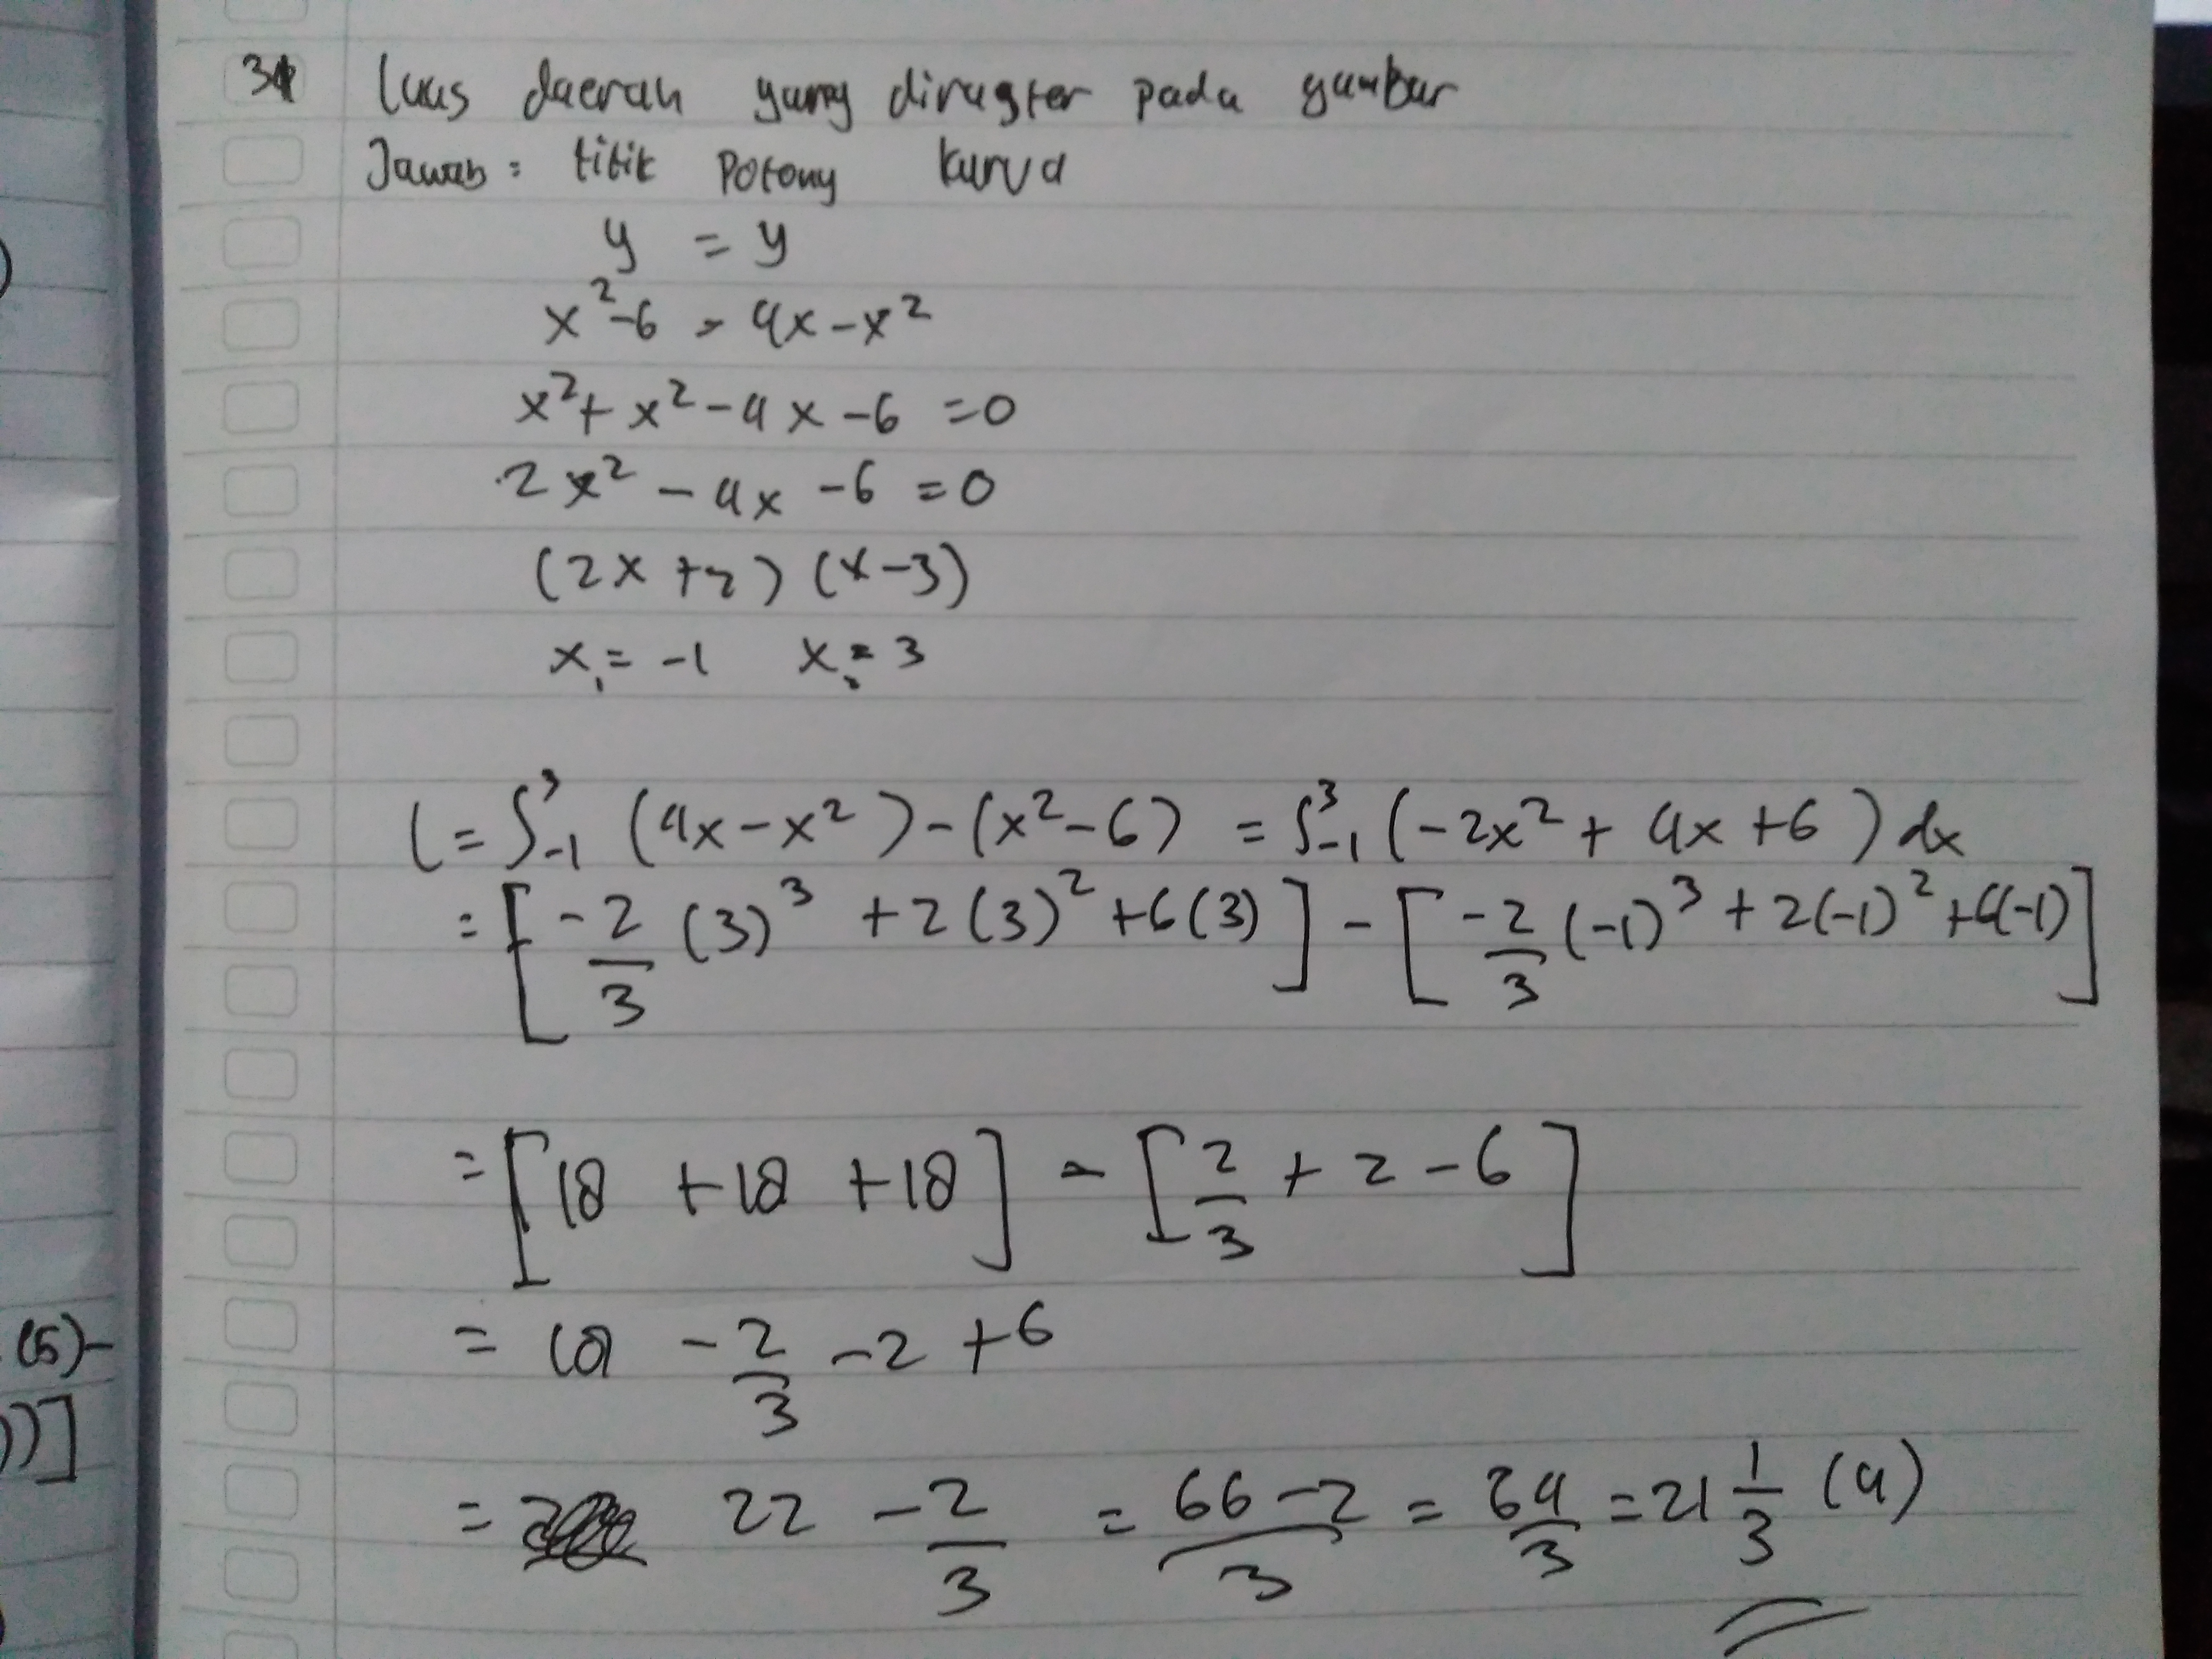 31 Luas daerah yang diragster pada gambar
Jawab : titik Potong kurva
y = y
x²-6 = 4x-x²
x²+x²-4x-6 =0
2x²-4x-6=0
(2x+2) (x-3)
x₁= -1 x₂= 3
L=∫³₋₁ (4x-x²)-(x²-6) = ∫³₋₁ (-2x²+4x+6) dx
= [-2/3 (3)³ +2(3)²+6(3)] - [-2/3 (-1)³+2(-1)²+6(-1)]
= [18 +18 +18] - [2/3 + 2 - 6]
= 18 - 2/3 - 2 + 6
= 22 - 2/3 = 66-2/3 = 64/3 = 21 1/3 (a)
(5)-
)]